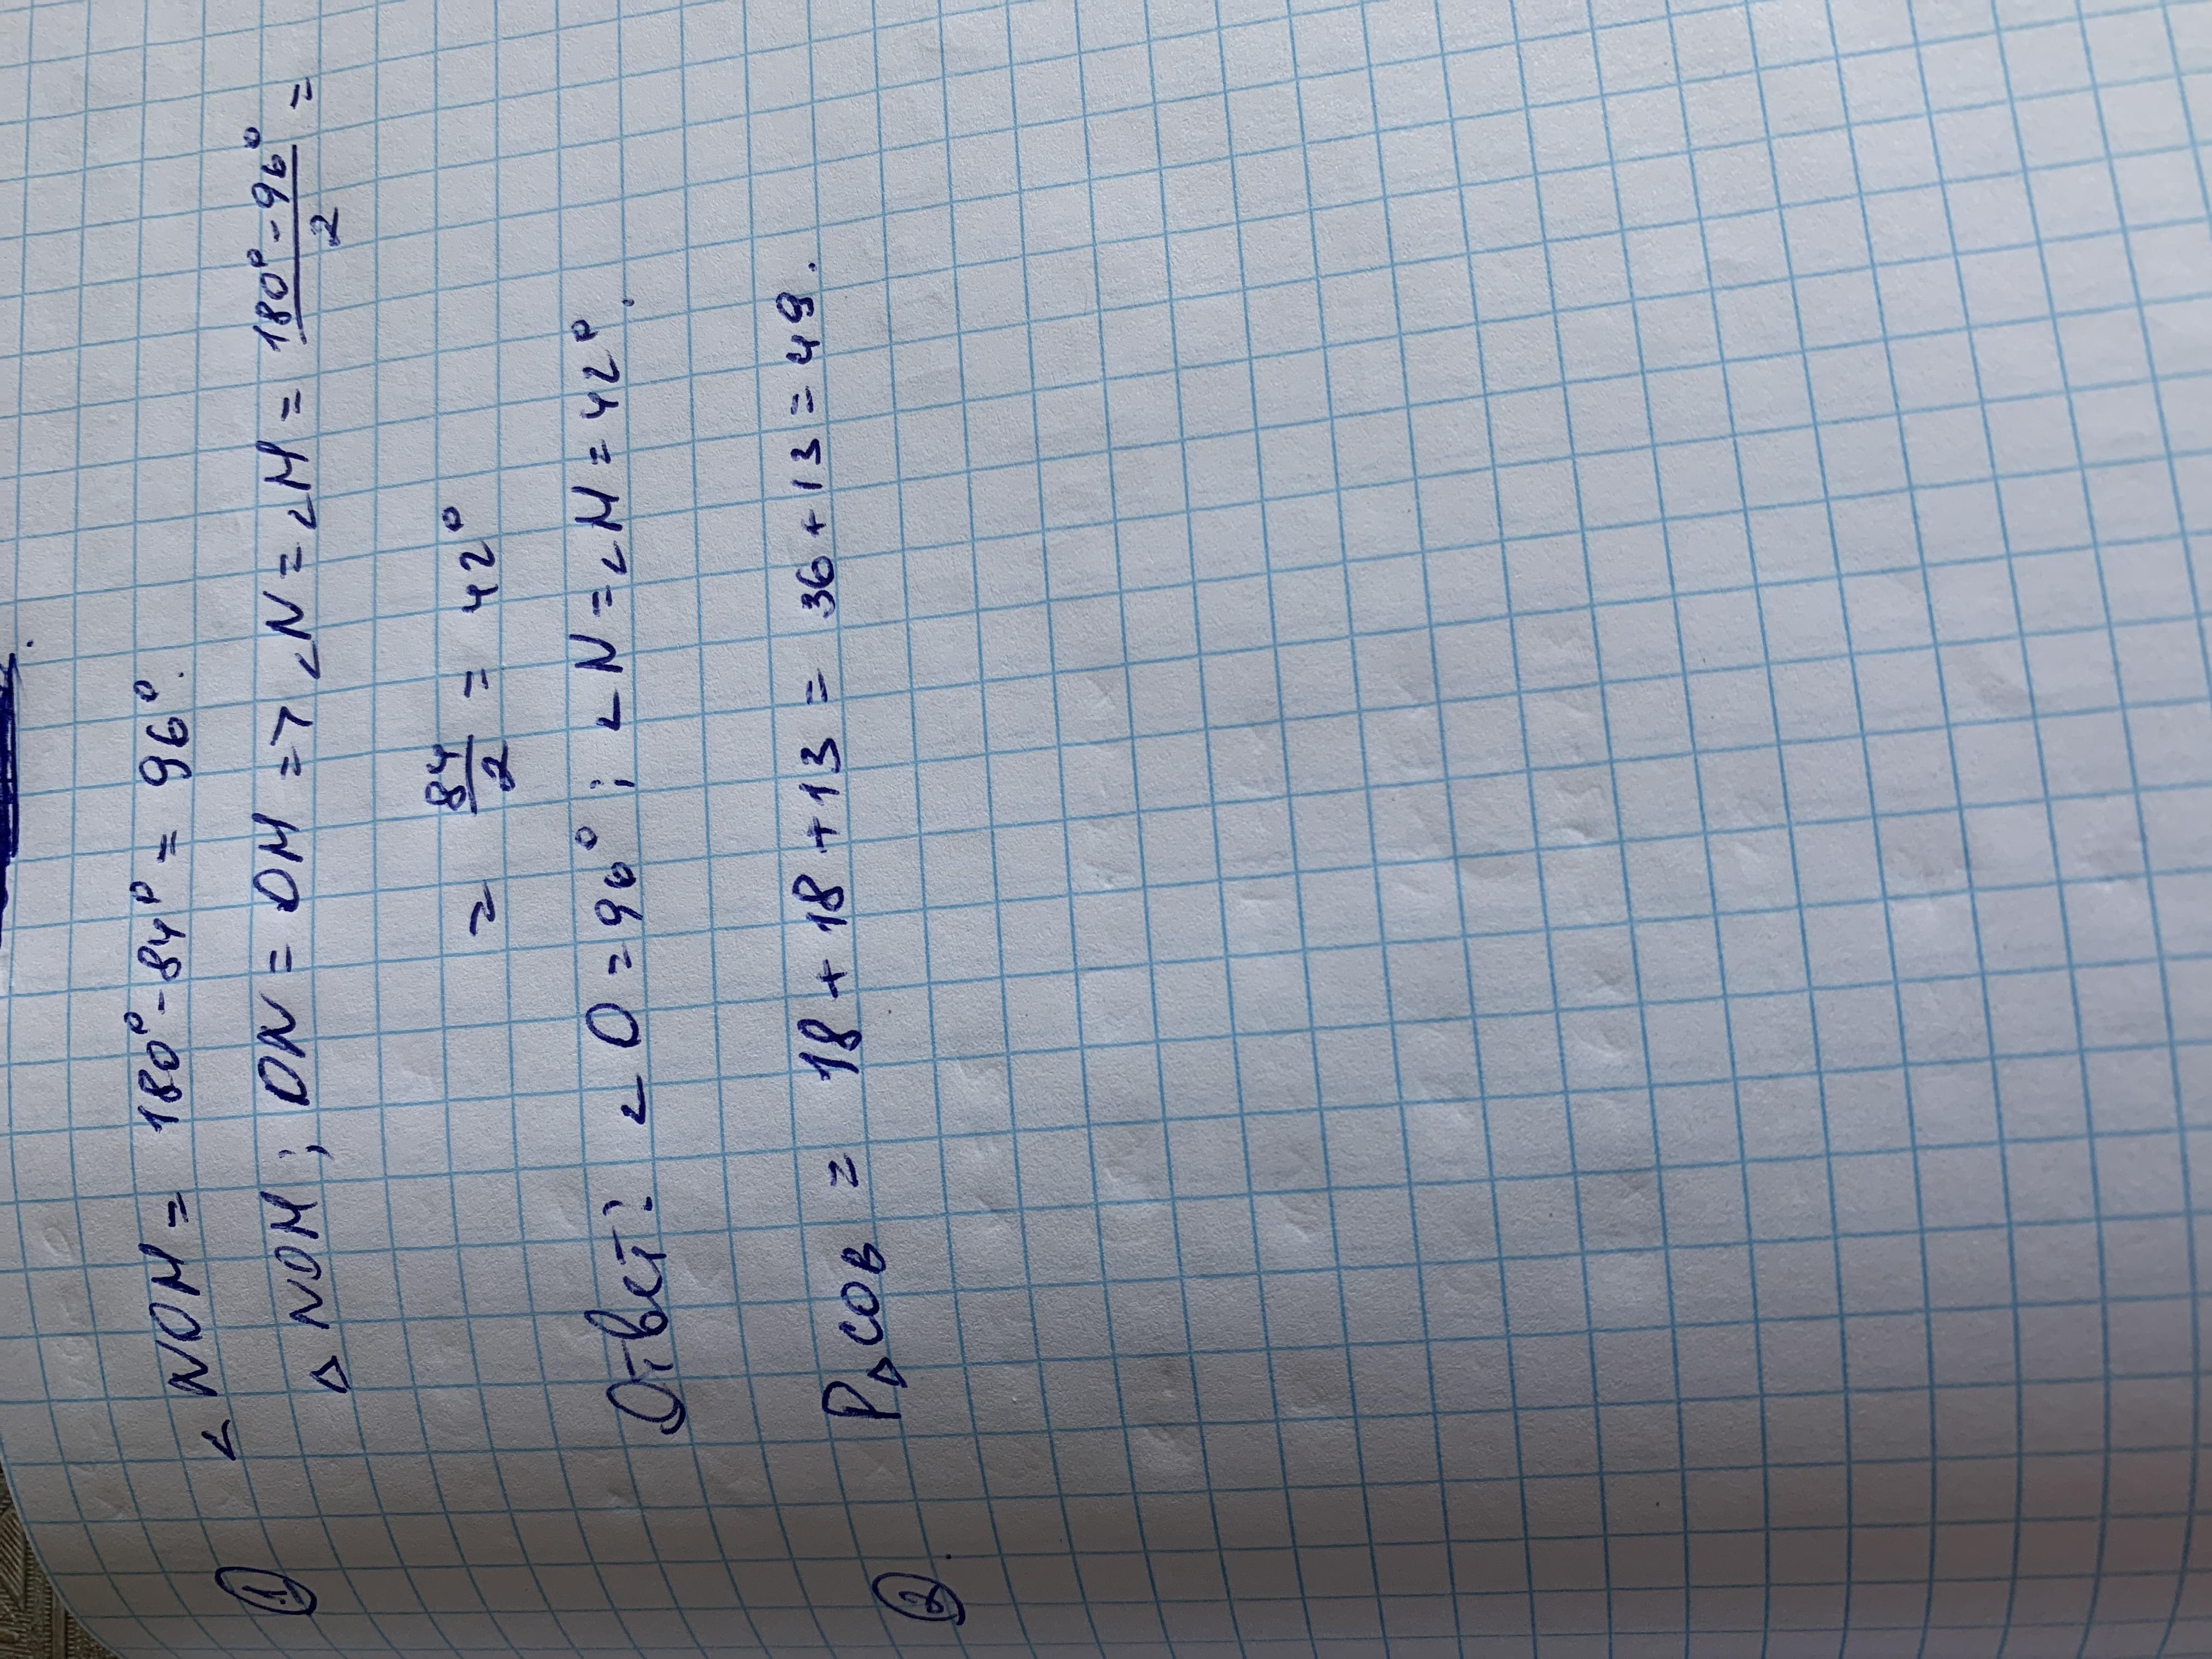 ① ∠NOM = 180° - 84° = 96°.
△ NOM; ON = OM => ∠N = ∠M = (180° - 96°)/2 =
= 84/2 = 42°
Ответ: ∠O = 96°; ∠N = ∠M = 42°.
② P△COB = 18 + 18 + 13 = 36 + 13 = 49.